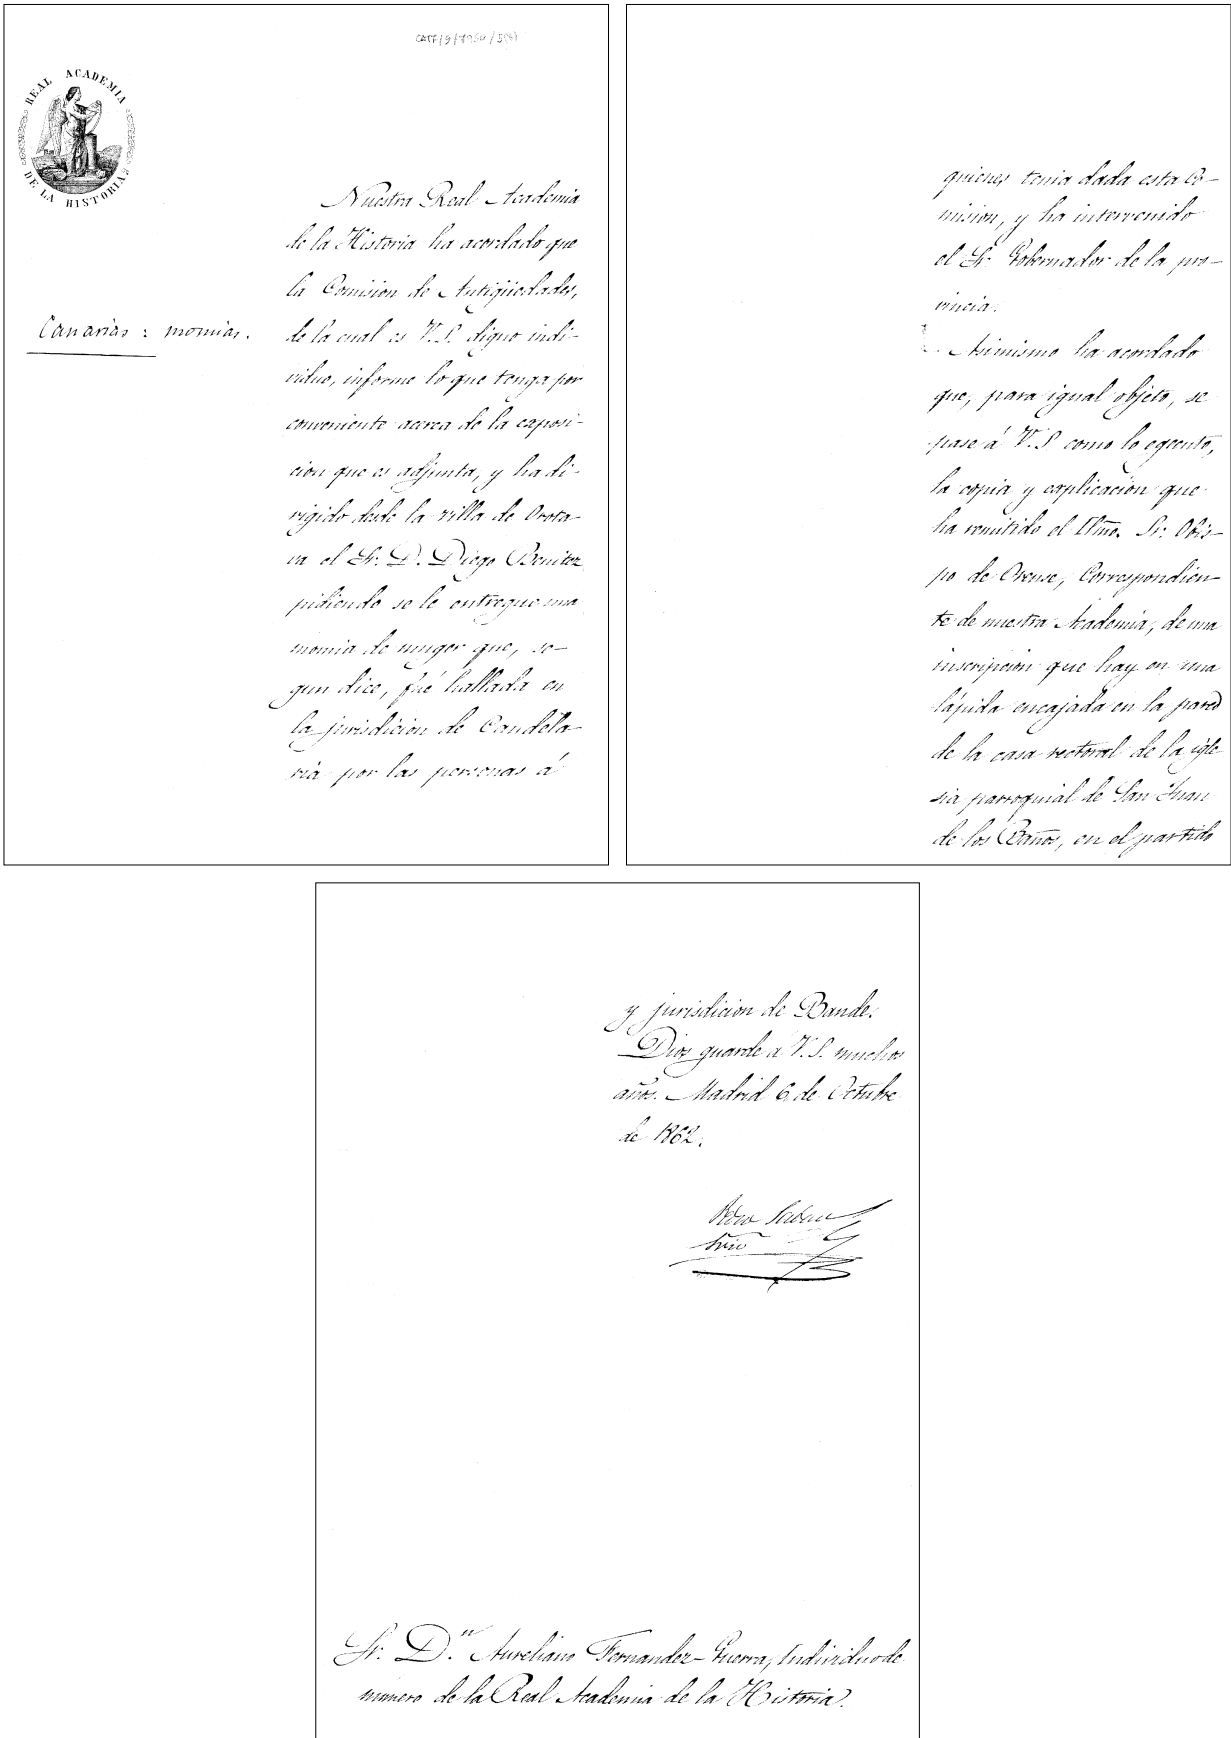 CATF/9/7950/5(5)
REAL ACADEMIA
DE LA HISTORIA
Canarias : momias.
Nuestra Real Academia
de la Historia ha acordado que
la Comision de Antigüedades,
de la cual es V. S. digno indi-
viduo, informe lo que tenga por
conveniente acerca de la exposi-
cion que es adjunta, y ha di-
rigido desde la villa de Orota-
va el Sr. D. Diego Benitez
pidiendo se le entregue una
momia de muger que, se-
gun dice, fué hallada en
la jurisdicion de Candela-
ria por las personas á
quienes tenia dada esta Co-
mision, y ha intervenido
el Sr. Gobernador de la pro-
vincia.
Asimismo ha acordado
que, para igual objeto, se
pase á V. S. como lo egecuto,
la copia y explicacion que
ha remitido el Ilmo. Sr. Obis-
po de Orense, Correspondien-
te de nuestra Academia, de una
inscripcion que hay en una
lápida encajada en la pared
de la casa rectoral de la igle
sia parroquial de San Juan
de los Baños, en el partido
y jurisdicion de Bande.
Dios guarde á V. S. muchos
años. Madrid 6 de Octubre
de 1862.
Pedro Sabau
Srio
Sr. D.n Aureliano Fernandez-Guerra, Individuo de
numero de la Real Academia de la Historia.